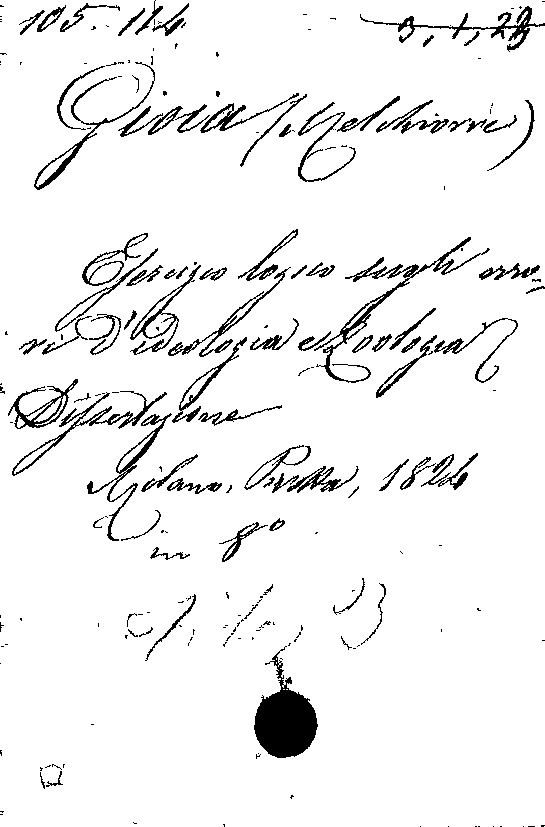 105. 114 3, 1, 23
Gioia (Melchiorre)
Esercizio logico sugli erro=
ri d'ideologia e Zoologia
Dissertazione
Milano, 1824
in 8º